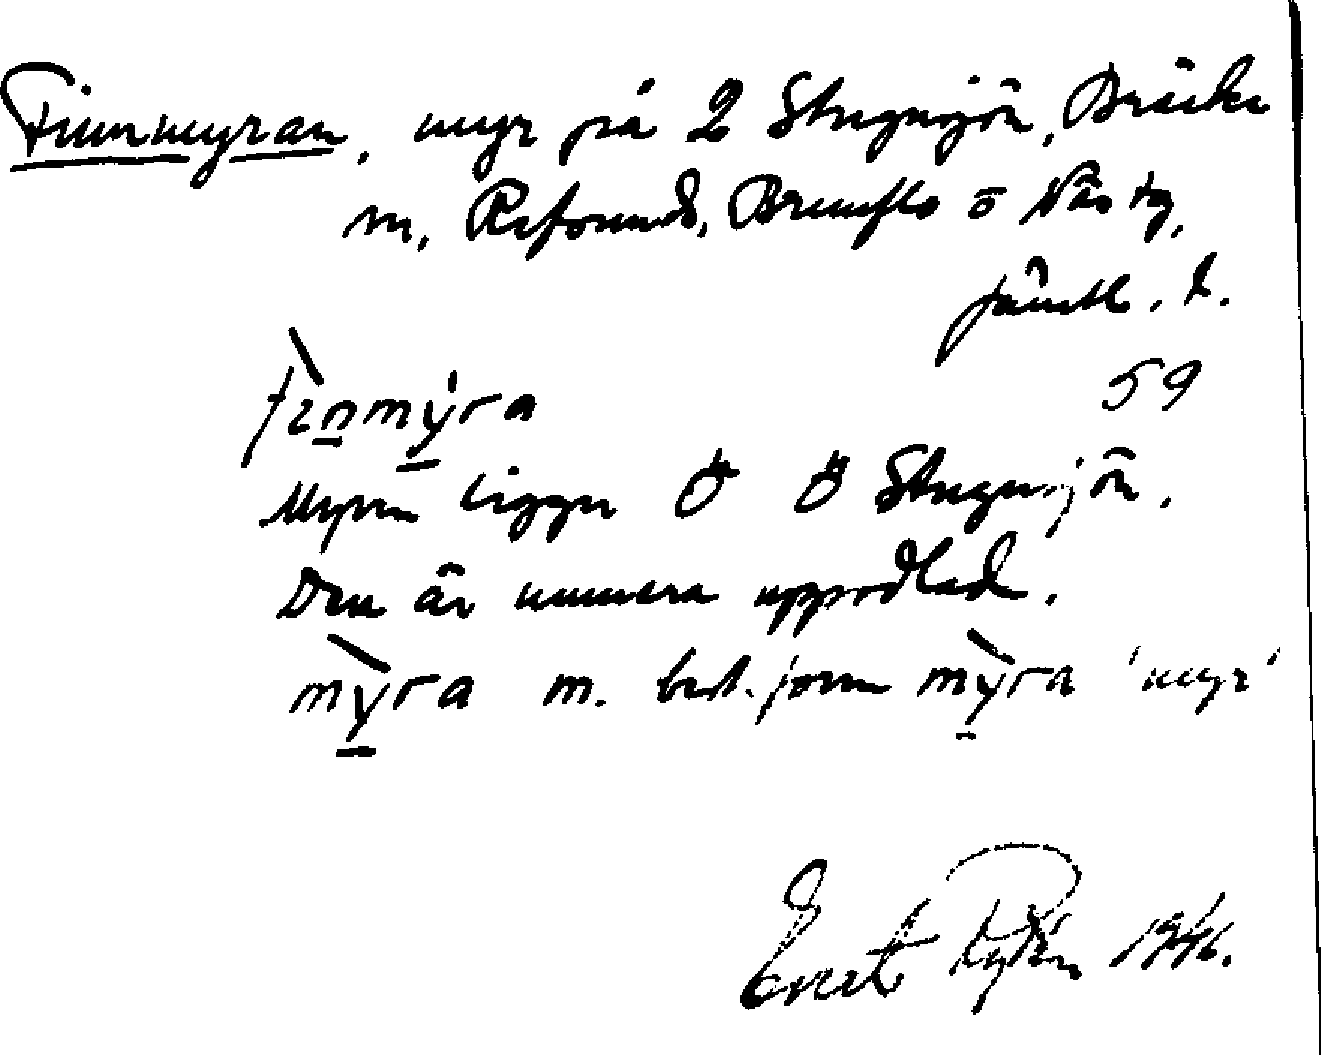 Finnmyran, myr på 2 Stugusjön, Bräcke
m, Refsunds, Brunflo o Näs tg,
Jämtl. l.
fìn̲mý̲ra 59
Myren ligger Ö Ö Stugusjön.
Den är numera uppodlad.
mỳ̲ra m. best. form mỳ̲ra 'myr'
Evert 1946.